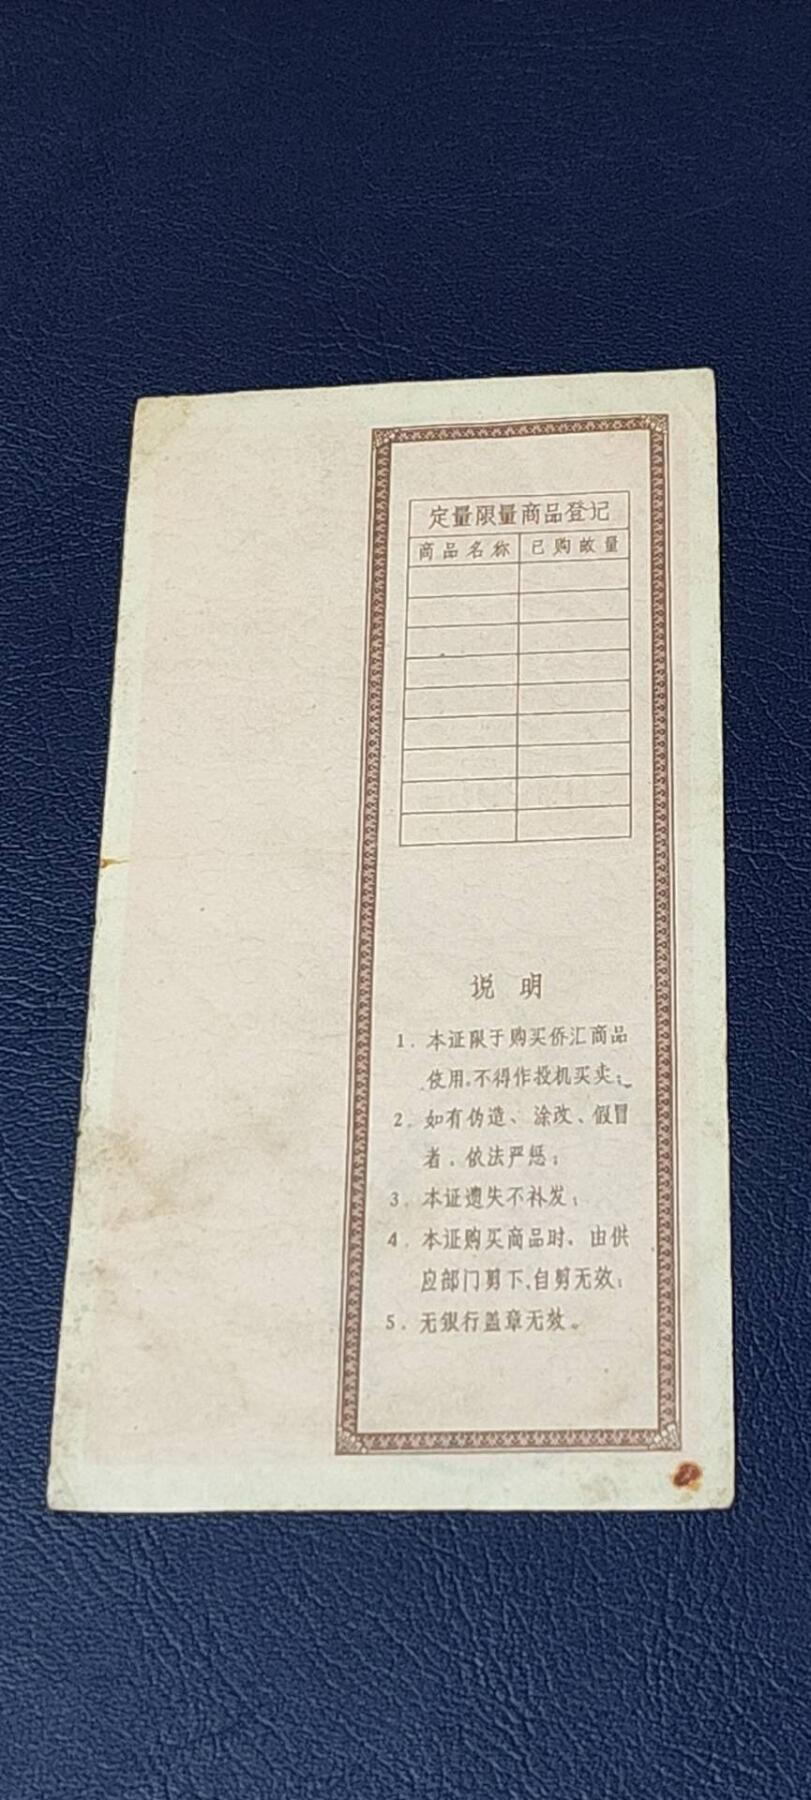 定量限量商品登记
商品名称 已购数量
说明
1. 本证限于购买侨汇商品
使用,不得作投机买卖;
2. 如有伪造、涂改、假冒
者,依法严惩;
3. 本证遗失不补发;
4. 本证购买商品时,由供
应部门剪下,自剪无效;
5. 无银行盖章无效。